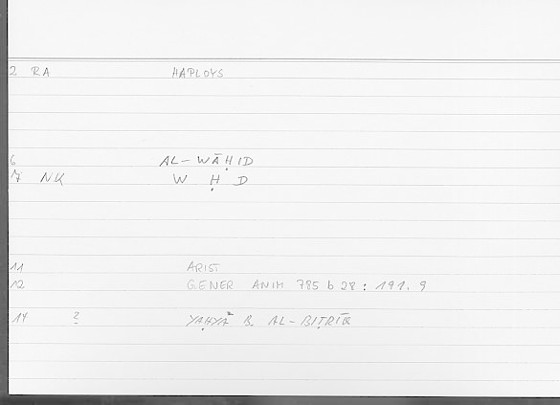 2 RA HAPLOYS
6 AL-WĀḤID
7 NK W Ḥ D
11 ARIST
12 GENER ANIM 785 b 28 : 191. 9
14 2 YAḤYĀ B. AL-BIṬRĪQ